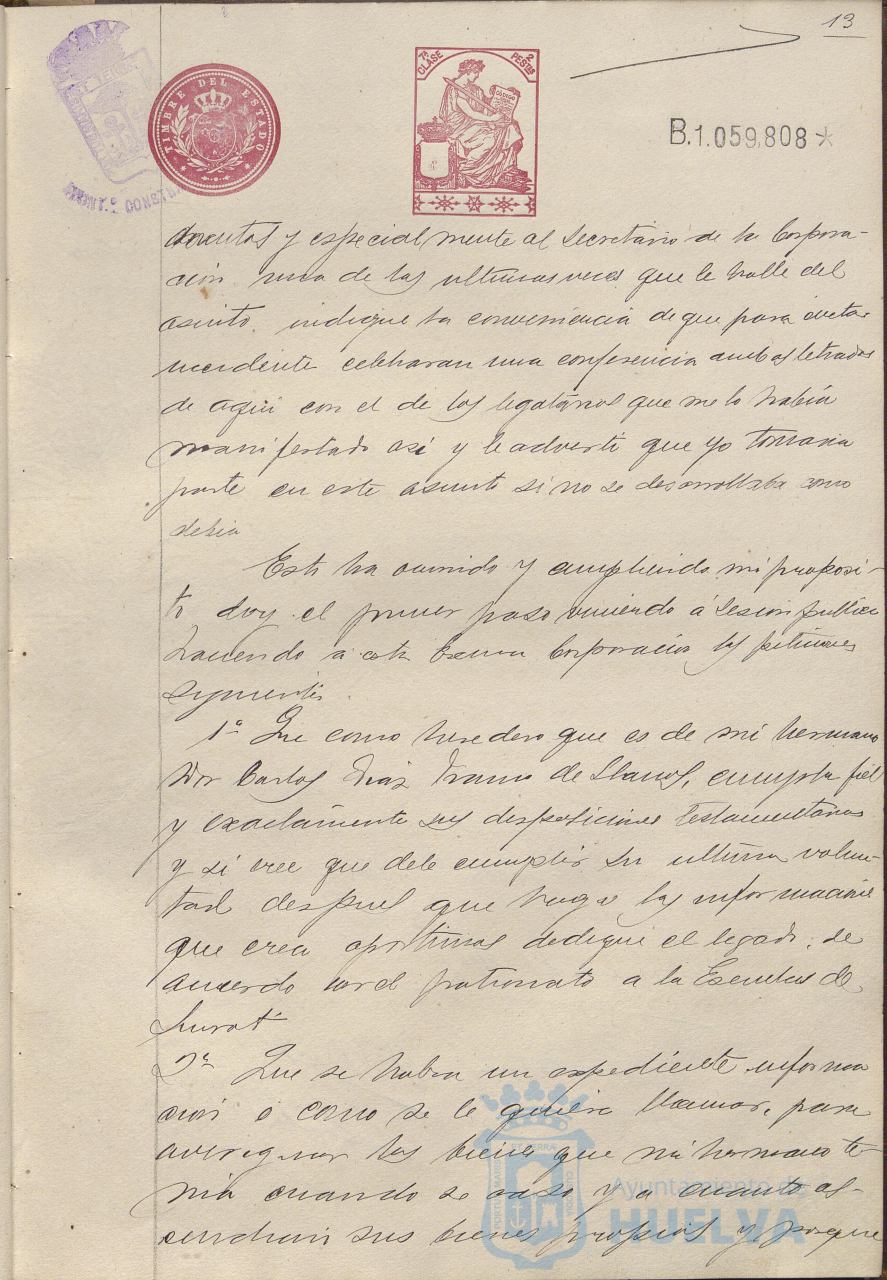 13
TIMBRE DEL ESTADO
7ª CLASE 2 PESTAS
CÓDIGO
B.1.059,808*
y especialmente al Secretario de la Corpora-
ción una de las ultimas veces que le hallé del
asunto, indiqué la conveniencia de que para evitar
incidente celebraran una conferencia ambos letrados
de aqui con el de los legatarios que me lo habia
manifestado asi y le adverti que yo tomaria
parte en este asunto si no se desarrollaba como
debia
Esto ha ocurrido y cumpliendo mi proposi-
to doy el primer paso viniendo á Sesion publica
haciendo a esta Excma Corporación las peticiones
siguientes
1º Que como heredero que es de mi hermano
Don Carlos Diaz Franco de Llanos, cumpla fiel
y exactamente sus disposiciones testamentarias
y si cree que debe cumplir su ultima volun-
tad despues que haga las informaciones
que crea oportunas dedique el legado, de
acuerdo con el patronato a la Escuelas de
Siurot
2ª Que se habra un expediente informa
ción o como se le quiera llamar, para
averiguar los bienes que mi hermano te-
nia cuando se caso y a cuanto as-
cendian sus bienes propios y porque
Ayuntamiento de
HUELVA